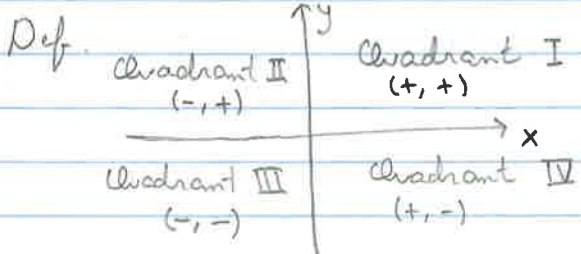 Def.
y
Quadrant II
(-, +)
Quadrant I
(+, +)
x
Quadrant III
(-, -)
Quadrant IV
(+, -)